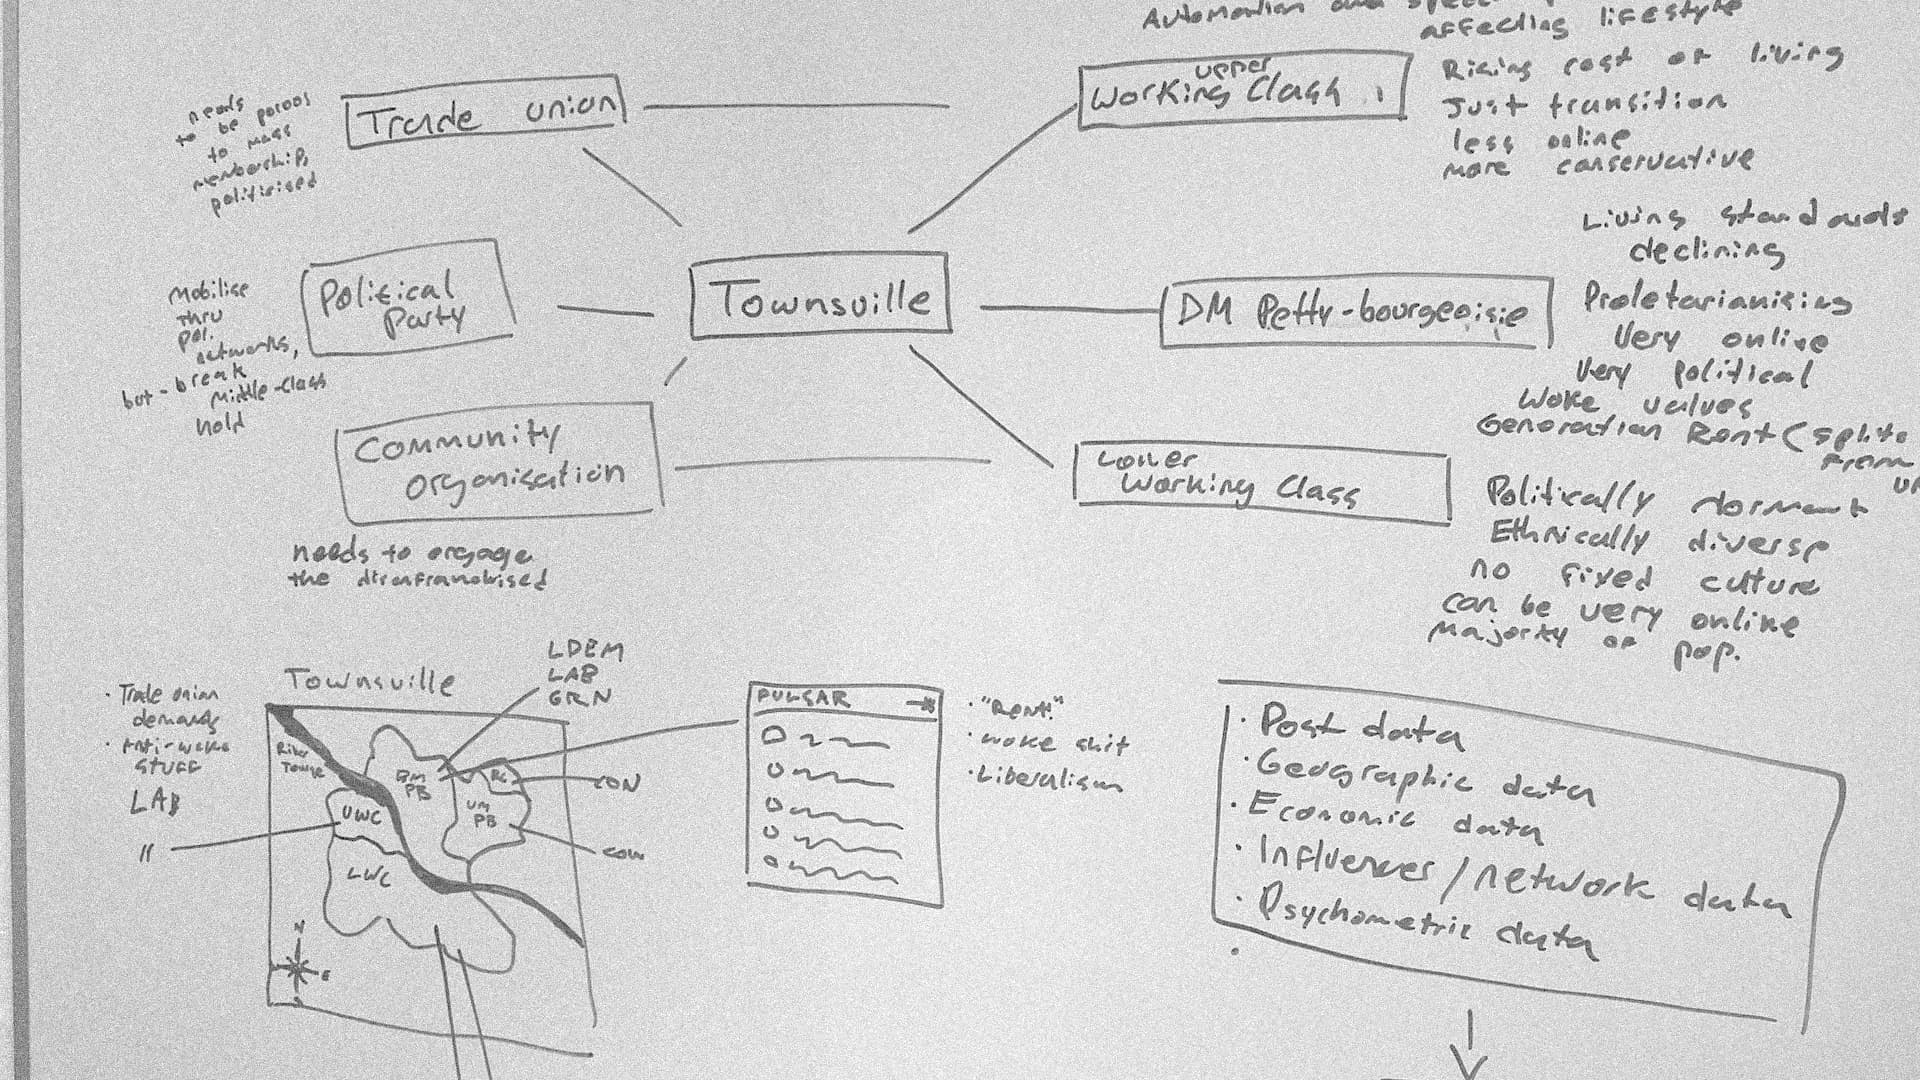 Automation and
affecting lifestyle
Rising cost of living
Just transition
less online
more conservative
upper
Working Class
Trade union
needs
to be porous
to mass
membership,
politicised
Political
Party
Mobilise
thru
pol.
networks,
but - break
Middle-Class
hold
Townsville
DM Petty-bourgeoisie
Living standards
declining
Proletarianising
Very online
Very political
Woke values
Generation Rent (splits
from
Community
organisation
needs to engage
the disenfranchised
Lower
Working Class
Politically dormant
Ethnically diverse
no fixed culture
can be very online
Majority of pop.
Townsville
LDEM
LAB
GRN
· Trade union
demands
· Anti-woke
stuff
LAB
"
River
Towne
DM
PB
UWC
UM
PB
LWC
CON
CON
N
E
S
PULSAR
· "Rent!"
· woke shit
· Liberalism
· Post data
· Geographic data
· Economic data
· Influencer / network data
· Psychometric data
·